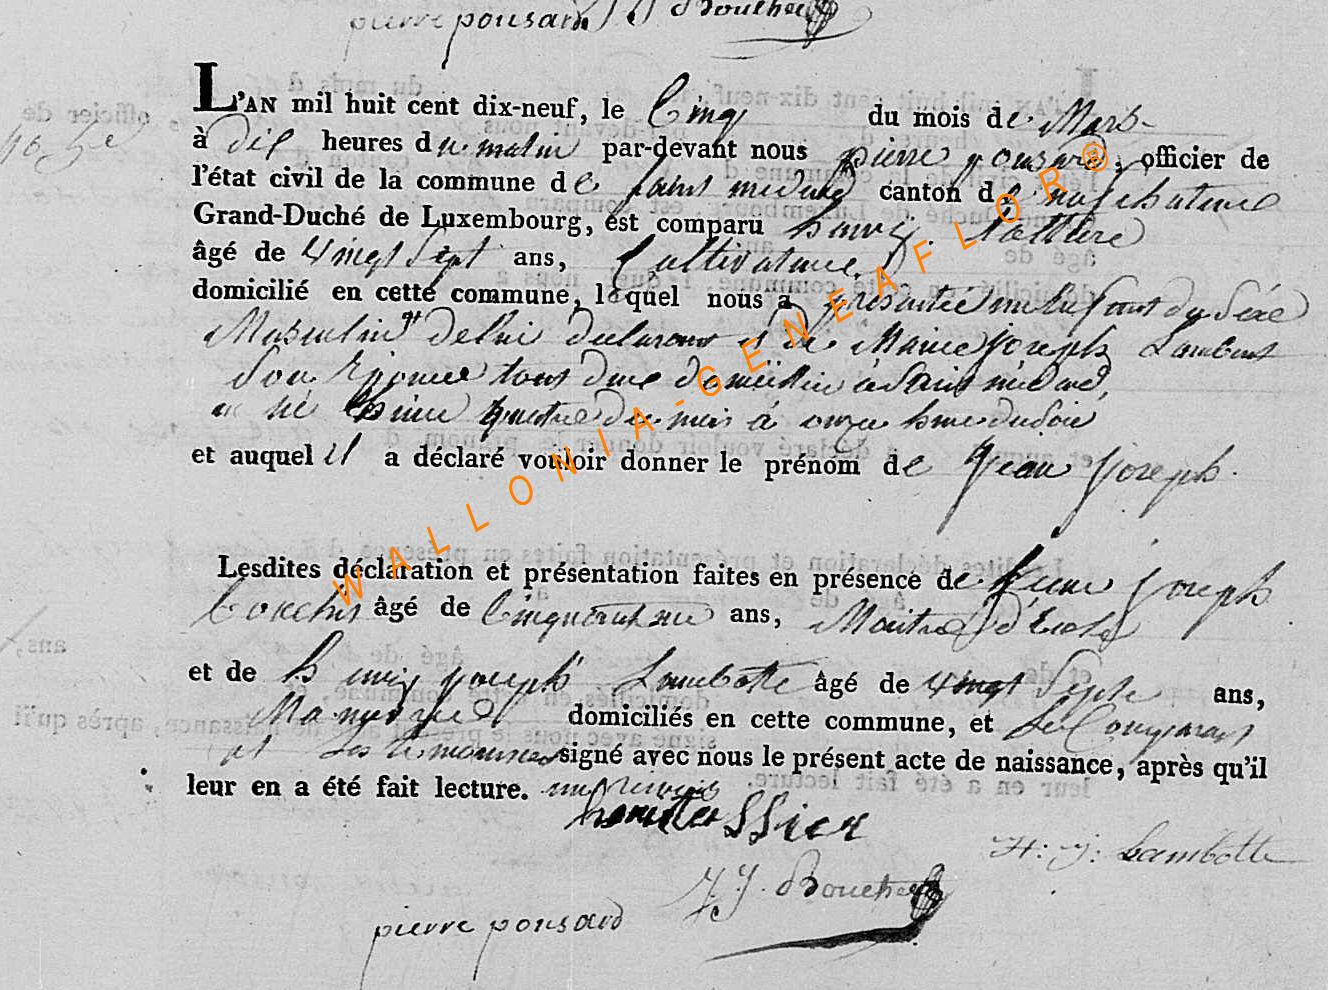 pierre pousard J J Bouché
L'AN mil huit cent dix-neuf, le Cinq du mois de Mars
à dix heures du matin par-devant nous pierre pousard, officier de
l'état civil de la commune de saint medard canton de neufchateau
Grand-Duché de Luxembourg, est comparu henri
âgé de vingt Sept ans, Cultivateur
domicilié en cette commune, lequel nous a présenté un Enfant du Sexe
Masculin de lui declarant et de Marie joseph Lambert
Son Epouse tous deux domicilié à Saint médard
né hier quatre du mois à onze heure du soir
et auquel il a déclaré vouloir donner le prénom de Jean joseph.
Lesdites déclaration et présentation faites en présence de joseph
âgé de ans, Maitre d'Ecole
et de henry joseph Lambotte âgé de vingt Septe ans,
domiciliés en cette commune, et Le Comparant
et Les temoins signé avec nous le présent acte de naissance, après qu'il
leur en a été fait lecture.
H: J: Lambotte
J J. Bouché
pierre pousard
WALLONIA-GENEAFLOR®